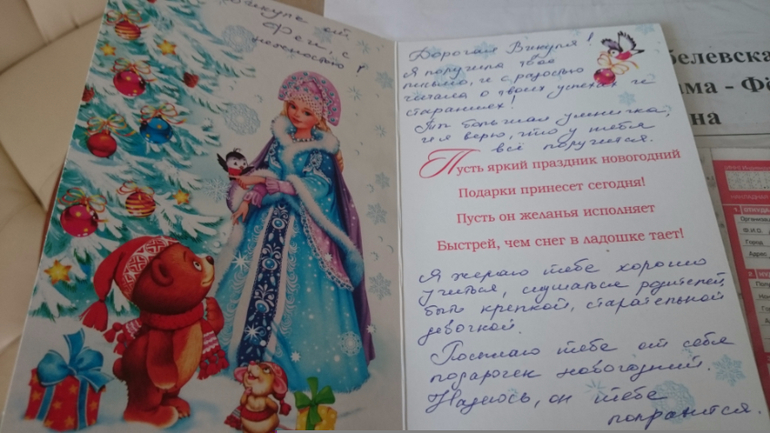 Викуле от
Феи, с
нежностью!
Дорогая Викуля!
Я получила твоё
письмо, и с радостью
читала о твоих успехах и
стараниях!
Ты большая умничка,
и я верю, что у тебя
всё получится.
Пусть яркий праздник новогодний
Подарки принесет сегодня!
Пусть он желанья исполняет
Быстрей, чем снег в ладошке тает!
Я желаю тебе хорошо
учиться, слушаться родителей,
быть крепкой, старательной
девочкой.
Посылаю тебе от себя
подарочек новогодний.
Надеюсь, он тебе
понравится.
белевска
ама - Фё
на
Организ
Ф.И.О.
Город
Адрес